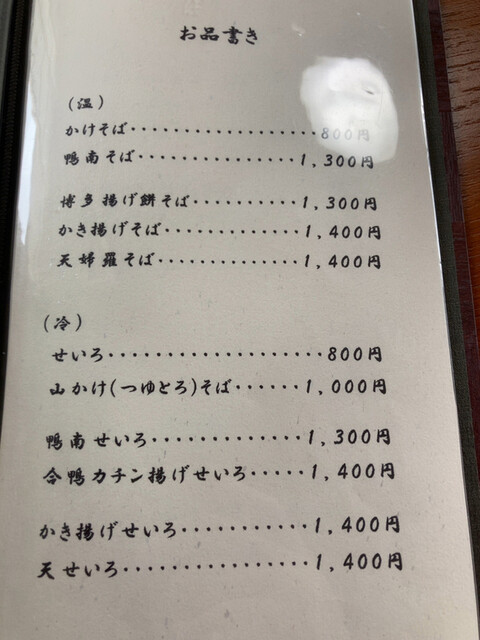 お品書き
(温)
かけそば・・・・・・・・・・・・・・・・・・・800円
鴨南そば・・・・・・・・・・・・・・・1,300円
博多揚げ餅そば・・・・・・・・・・1,300円
かき揚げそば・・・・・・・・・・・・・1,400円
天婦羅そば・・・・・・・・・・・・・・1,400円
(冷)
せいろ・・・・・・・・・・・・・・・・・・・・・800円
山かけ(つゆとろ)そば・・・・・・1,000円
鴨南せいろ・・・・・・・・・・・・・1,300円
合鴨カチン揚げせいろ・・・・・1,400円
かき揚げせいろ・・・・・・・・・・・1,400円
天せいろ・・・・・・・・・・・・・・・・1,400円